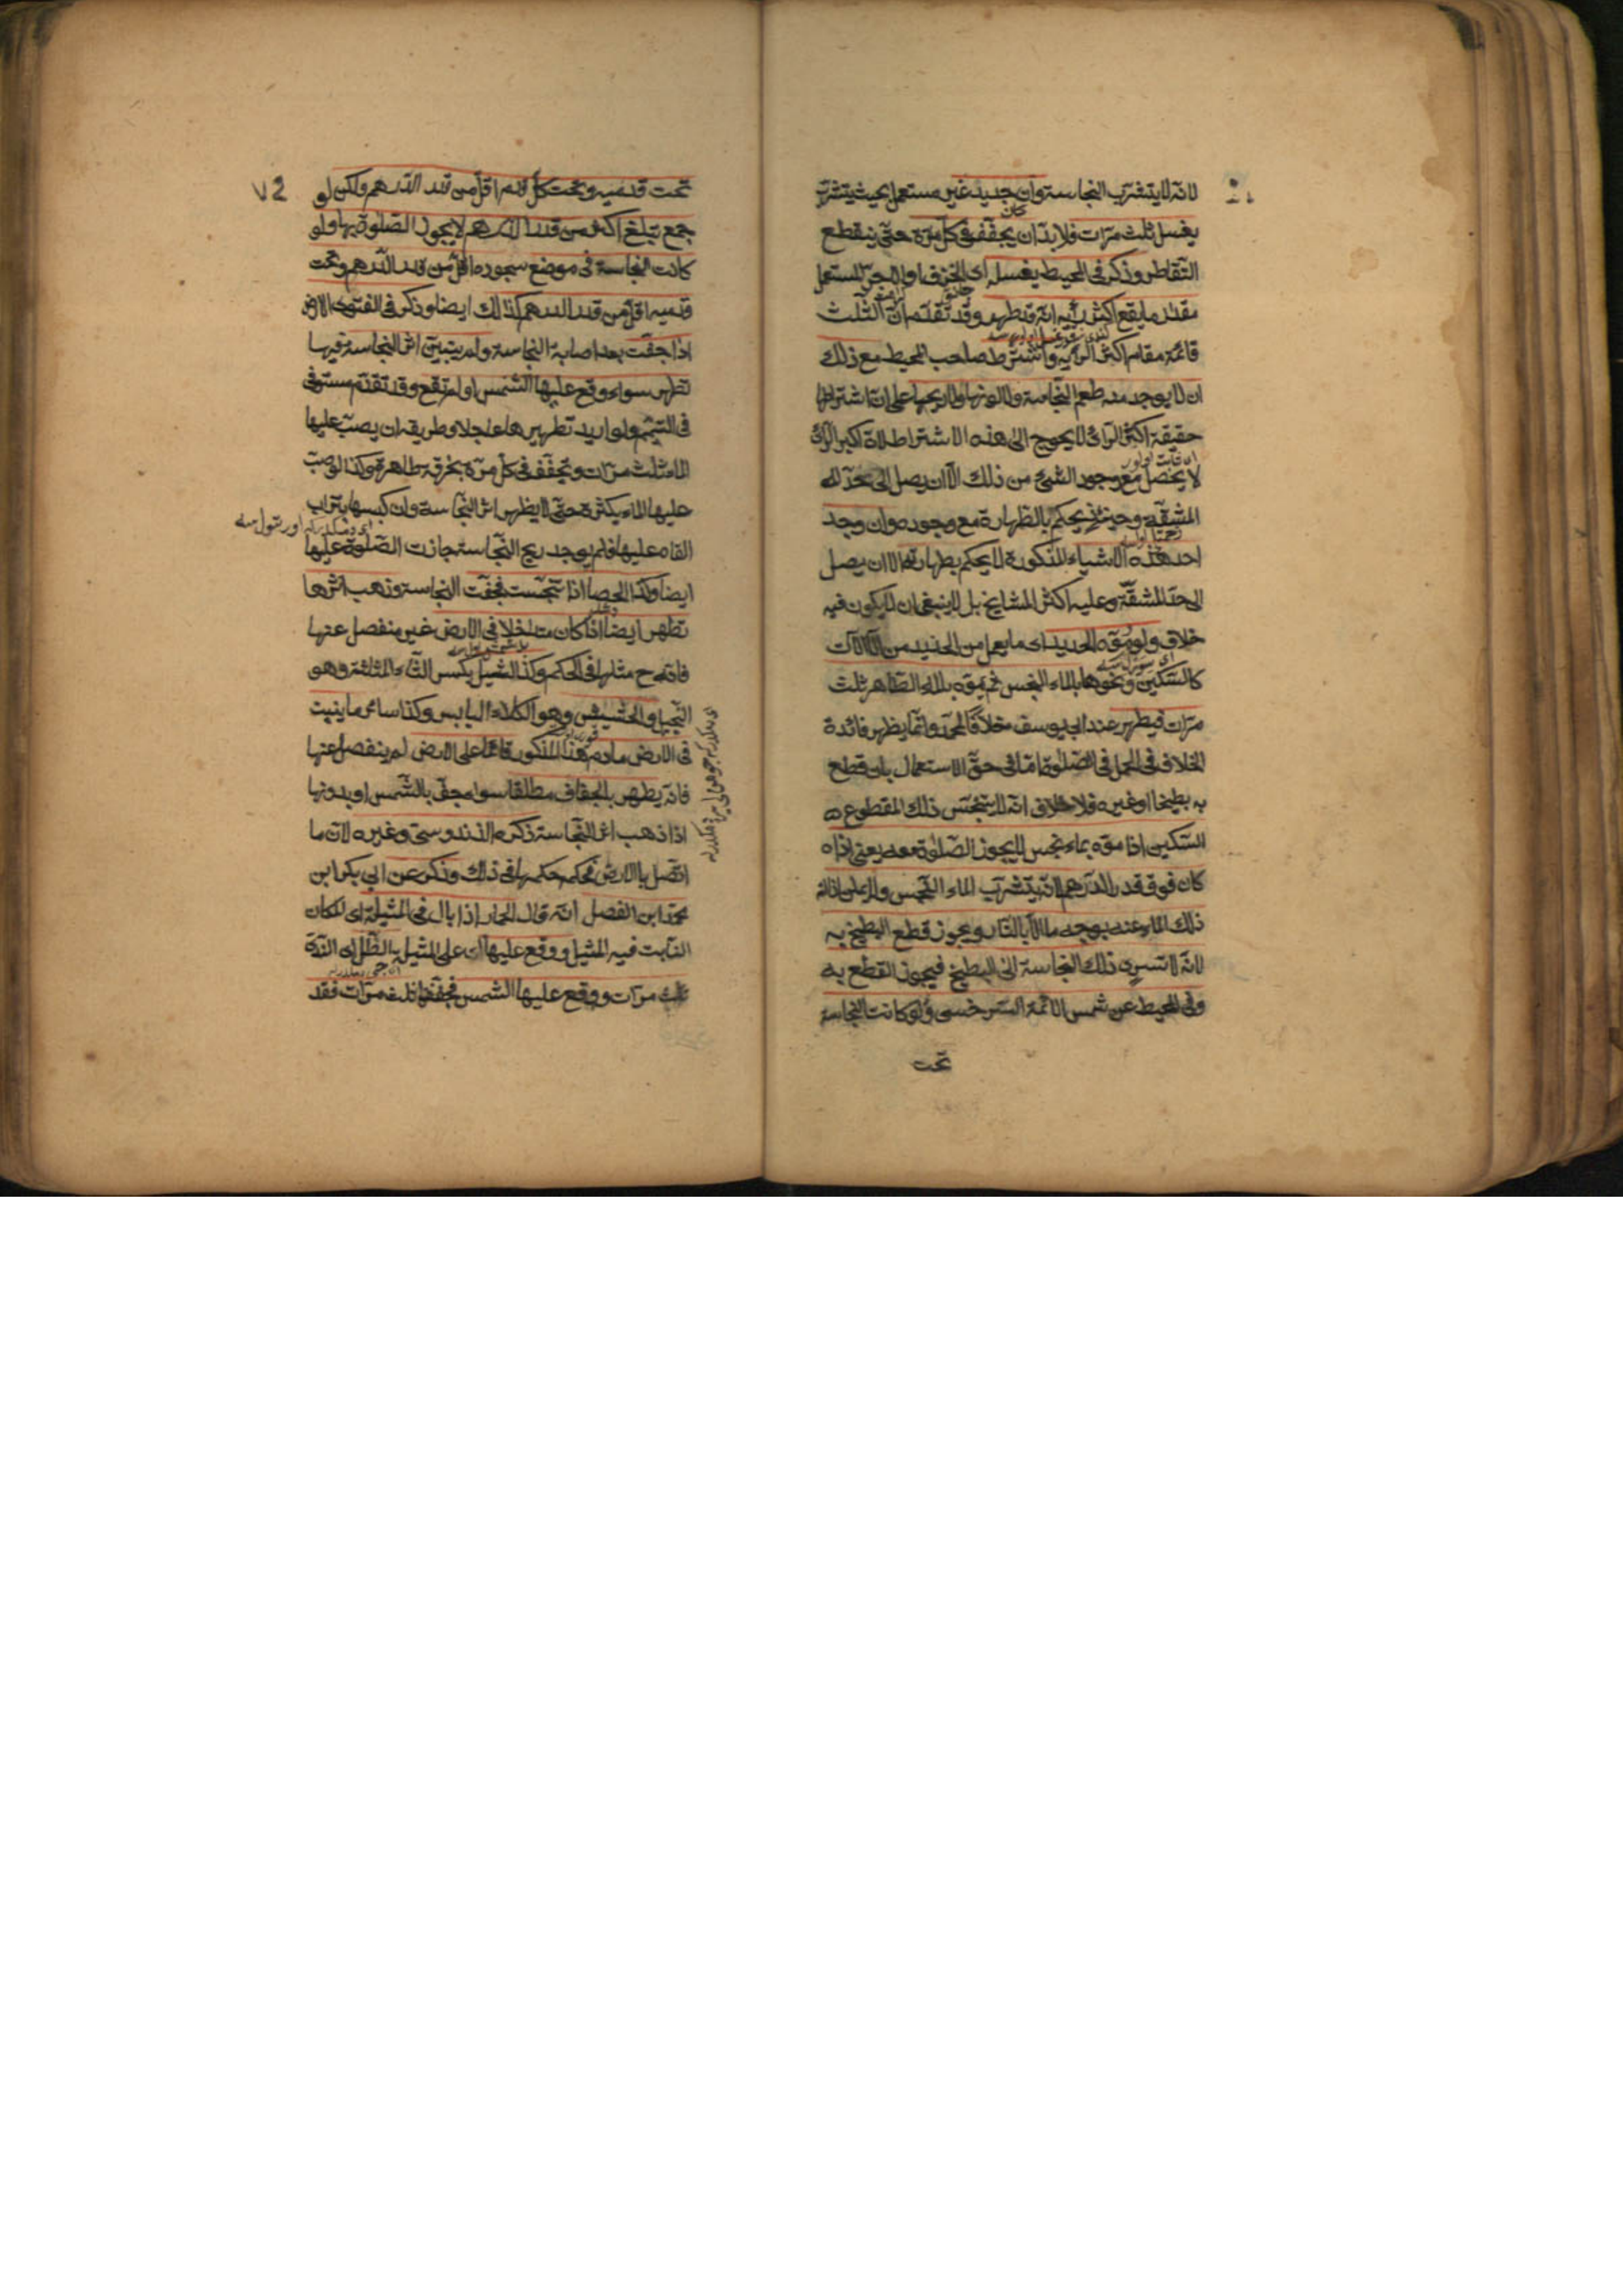 لانه لا يتشرب النجاسة وان جديد غير مستعمل بحيث يتشرب
كان
يغسل ثلث مرات فلا بد ان يجفف فى كل مرة حتى ينقطع
التقاطر وذكر فى المحيط يغسل اى الخزف او الاجر المستعمل
مقدار ما يقع اكثر رأيه انه قد طهر وقد تقدم ان الثلث
قائمة مقام اكثر الرأى واشترط صاحب المحيط مع ذلك
ان لا يوجد منه طعم النجاسة ولا لونها ولا ريحها على ان اشتراط
حقيقة اكثر الرأى لا يحوج الى هذه الاشتراط لان اكبر الرأى
لا يحصل مع وجود الشئ من ذلك الا ان يصل الى حد
المشقة وحينئذ يحكم بالطهارة مع وجوده وان وجد
احد هذه الاشياء المذكورة لا يحكم بطهارته الا ان يصل
الى حد المشقة وعليه اكثر المشايخ بل لا ينبغى ان لا يكون فيه
خلاف ولو موه الحديد اى ما يعمل من الحديد من الآلات
كالسكين ونحوها بالماء النجس ثم يموه بالماء الطاهر ثلث
مرات فيطهر عند ابى يوسف خلافا لمحمد وانما يظهر فائدة
الخلاف فى الحمل فى الصلوة اما فى حق الاستعمال بان قطع
به بطيخا او غيره فلا خلاف انه لا يتنجس ذلك المقطوع
السكين اذا موه بماء نجس لا يجوز الصلوة معه يعنى اذا
كان فوق قدر الدرهم لانه يتشرب الماء النجس ولا يمكن ازالة
ذلك الماء عنه بوجه ما الا بالنار ويجوز قطع البطيخ به
لانه لا تسرى ذلك النجاسة الى البطيخ فيجوز القطع به
وفى المحيط عن شمس الائمة السرخسى ولو كانت النجاسة
تحت
تحت قدميه وتحت كل قدم اقل من قدر الدرهم ولكن لو
جمع تبلغ اكثر من قدر الدرهم لا يجوز الصلوة بها ولو
كانت النجاسة فى موضع سجوده اقل من قدر الدرهم وتحت
قدميه اقل من قدر الدرهم كذلك ايضا وذكر فى الفتوى الارض
اذا جفت بعد اصابة النجاسة ولم يتبين اثر النجاسة فيها
تطهر سواء وقع عليها الشمس او لم تقع وقد تقدم مستوفى
فى التيمم ولو اريد تطهيرها عاجلا وطريقه ان يصب عليها
الماء ثلث مرات وتجفف فى كل مرة بخرقة طاهرة وكذا لو صب
عليها الماء بكثرة حتى لا يظهر اثر النجاسة وان كبسها بتراب
القاه عليها فلم يوجد ريح النجاسة جازت الصلوة عليها
ايضا وكذا الحصا اذا تنجست فجفت النجاسة وذهب اثرها
تطهر ايضا اذا كان متداخلا فى الارض غير منفصل عنها
فانه ح مثلها فى الحكم وكذا الثيل بكسر الثاء المثلثة وهو
النجيل والحشيش وهو الكلاء اليابس وكذا سائر ما ينبت
فى الارض مادام هذا المذكور قائما على الارض لم ينفصل عنها
فانه يطهر بالجفاف مطلقا سواء جف بالشمس او بدونها
اذا ذهب اثر النجاسة ذكره الزندوستى وغيره لان ما
اتصل بالارض فحكمه حكمها فى ذلك وذكر عن ابى بكر ابن
محمد ابن الفضل انه قال الحمار اذا بال فى المثيلة اى المكان
النابت فيه الثيل ووقع عليها اى على المثيل به الظل اى الندى
ثلث مرات ووقع عليها الشمس فجففها ثلث مرات فقد